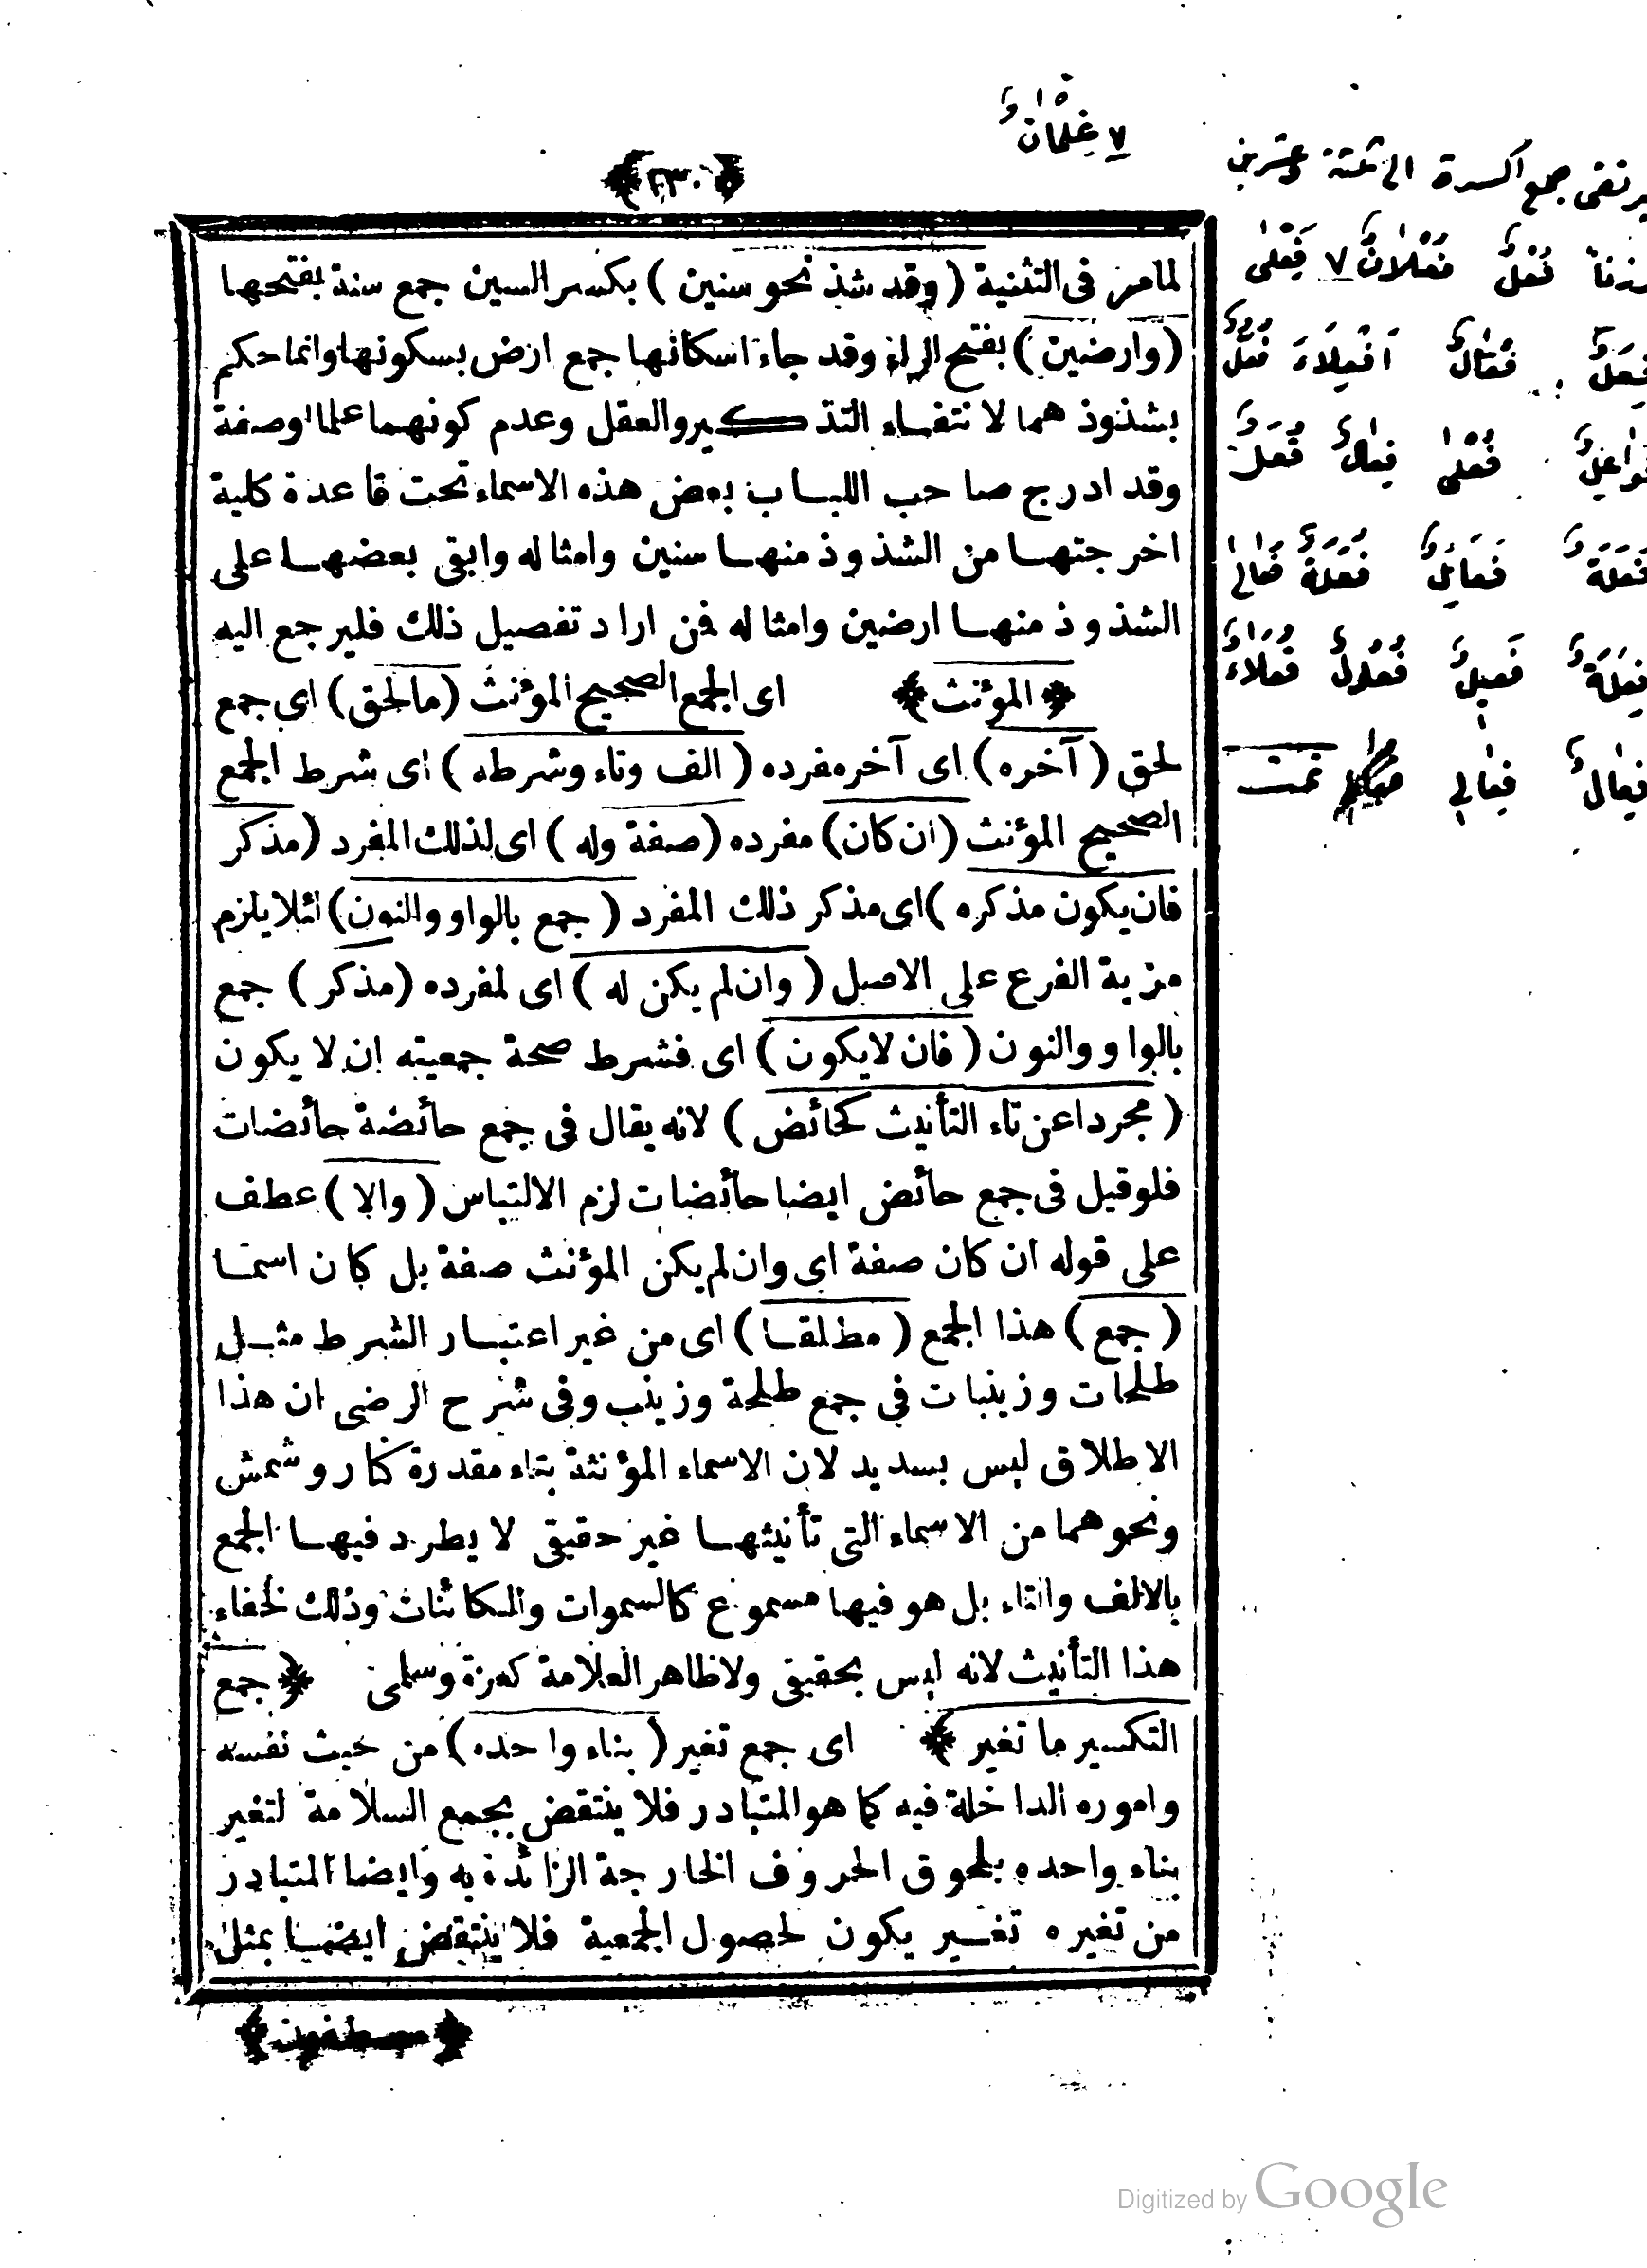 ﴿٢٣٠﴾
٧ غِلْمَانٌ
لمامر فى التثنية (وقد شذ نحو سنين) بكسر السين جمع سنة بفتحها
(وارضين) بفتح الراء وقد جاء اسكانها جمع ارض بسكونها وانما حكم
بشذوذ هما لا نتفاء التذكير والعقل وعدم كونهما علما اوصفة
وقد ادرج صاحب اللباب بعض هذه الاسماء تحت قاعدة كلية
اخرجتها من الشذوذ منها سنين وامثاله وابقى بعضها على
الشذوذ منها ارضين وامثاله فمن اراد تفصيل ذلك فليرجع اليه
﴿المؤنث﴾ اى الجمع الصحيح المؤنث (مالحق) اى جمع
لحق (آخره) اى آخر مفرده (الف وتاء وشرطه) اى شرط الجمع
الصحيح المؤنث (ان كان) مفرده (صفة وله) اى لذلك المفرد (مذكر
فان يكون مذكره) اى مذكر ذلك المفرد (جمع بالواو والنون) لئلا يلزم
مزية الفرع على الاصل (وان لم يكن له) اى لمفرده (مذكر) جمع
بالواو والنون (فان لايكون) اى فشرط صحة جمعيته ان لا يكون
(مجردا عن تاء التأنيث كحائض) لانه يقال فى جمع حائضة حائضات
فلو قيل فى جمع حائض ايضا حائضات لزم الالتباس (والا) عطف
على قوله ان كان صفة اى وان لم يكن المؤنث صفة بل كان اسما
(جمع) هذا الجمع (مطلقا) اى من غير اعتبار الشرط مثل
طلحات وزينبات فى جمع طلحة وزينب وفى شرح الرضى ان هذا
الاطلاق ليس بسديد لان الاسماء المؤنثة بتاء مقدرة كنار وشمس
ونحوهما من الاسماء التى تأنيثها غير حقيقى لا يطرد فيها الجمع
بالالف والتاء بل هو فيها مسموع كالسموات والكائنات وذلك لخفاء
هذا التأنيث لانه ليس بحقيقى ولاظاهر العلامة كعزة وسلمى ﴿جمع
التكسير ما تغير﴾ اى جمع تغير (بناء واحده) من حيث نفسه
واموره الداخلة فيه كما هو المتبادر فلا ينتقض بجمع السلامة لتغير
بناء واحده بلحوق الحروف الخارجة الزائدة به وايضا المتبادر
من تغيره تغيير يكون لحصول الجمعية فلا ينتقض ايضا بمثل
﴿مصطفون﴾
يرتقى جمع اكسرة الى ثلثة وعشرين
وزنا فُعْلٌ فُعْلَانٌ ٧ فِعْلَى
فِعَلٌ فُعَّالٌ اَفْعِلَاءَ فُعُلٌ
فَوَاعِلٌ فُعْلَى فِعَالٌ فُعَّلٌ
فَعَلَةٌ فَعَائِلُ فُعَلَةٌ فَعَالَى
فِعَلَةٌ فَعِيلٌ فُعُولٌ فُعَلَاءُ
فِعَالٌ فِعَالِى تمت
Digitized by Google